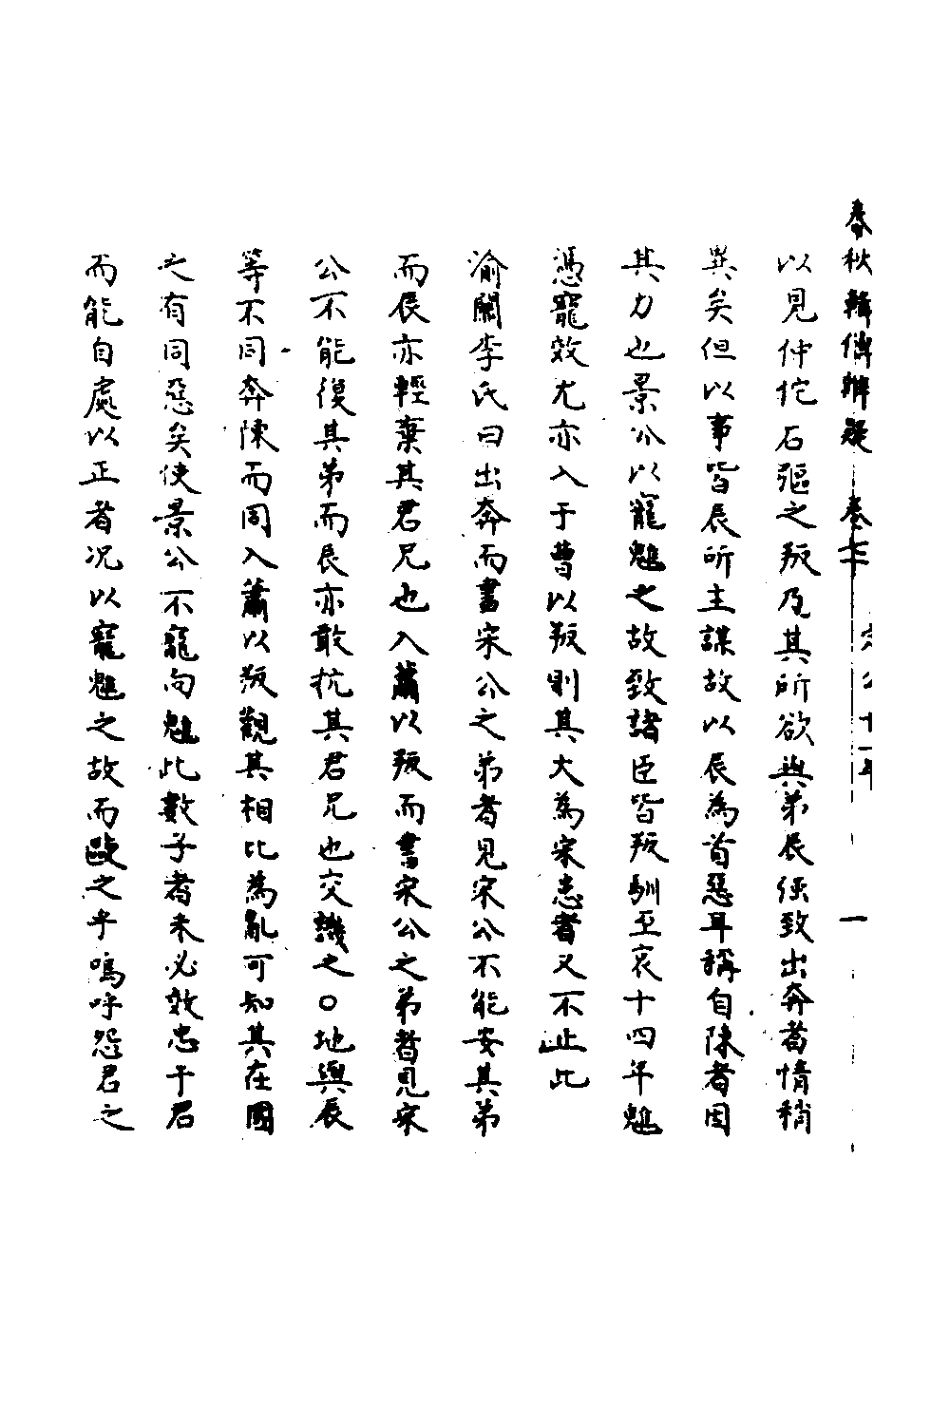 春秋輯傳辨疑 卷七十 定公十一年 一
以見仲佗石彄之叛及其所欲與弟辰伍致出奔者情稍
異矣但以事皆辰所主謀故以辰為首惡耳稱自陳者因
其力也景公以寵魋之故致諸臣皆叛馴至哀十四年魋
憑寵效尤亦入于曹以叛則其大為宋患者又不止此
渝關李氏曰出奔而書宋公之弟者見宋公不能安其弟
而辰亦輕棄其君兄也入蕭以叛而書宋公之弟者見宋
公不能復其弟而辰亦敢抗其君兄也交譏之○地與辰
等不同奔陳而同入蕭以叛觀其相比為亂可知其在國
之有同惡矣使景公不寵向魋此數子者未必效忠于君
而能自處以正者况以寵魋之故而敺之乎嗚呼怨君之